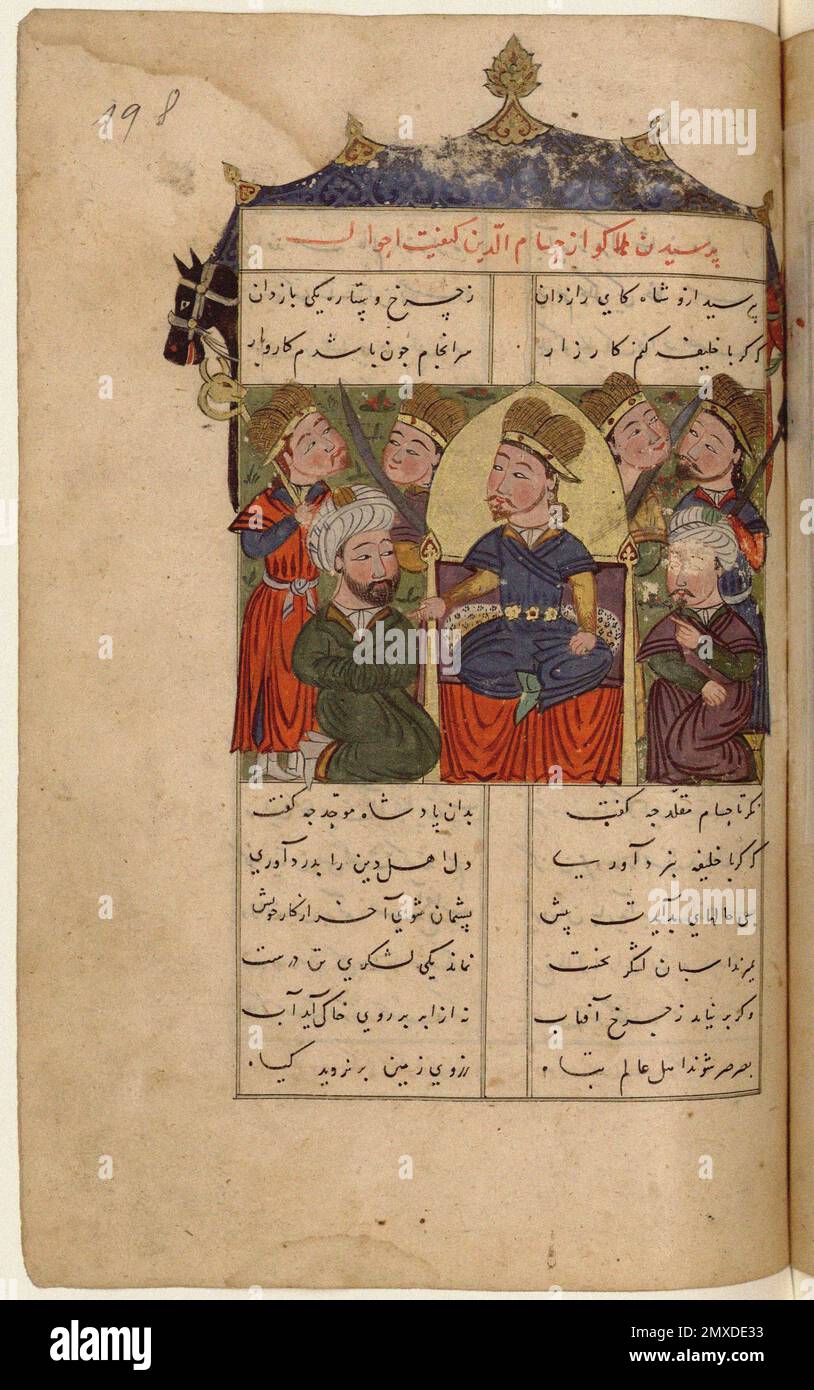 198
پرسیدن هلاکو از حسام الدین کیفیت احوال
بپرسید ازو شاه کای رازدان ز چرخ و ستاره یکی بازدان
که گر با خلیفه کنم کارزار سرانجام چون باشدم کاروبار
نکر تا حسام مقلد چه گفت بدان پادشاه موحد چه گفت
که گر با خلیفه نبرد آوریا دل اهل دین را بدرد آوری
بس حالهای بدآیدت پیش پشیمان شوی آخر از کار خویش
بمیرند اسبان لشکر نخست نماند یکی لشکری تن درست
وکر بر نیاید ز چرخ آفتاب نه از ابر بر روی خاک آید آب
بصرصر شوند اهل عالم تباه ز روی زمین بر نروید کیاه
a alamy
alamy
Image ID: 2MXDE33
www.alamy.com